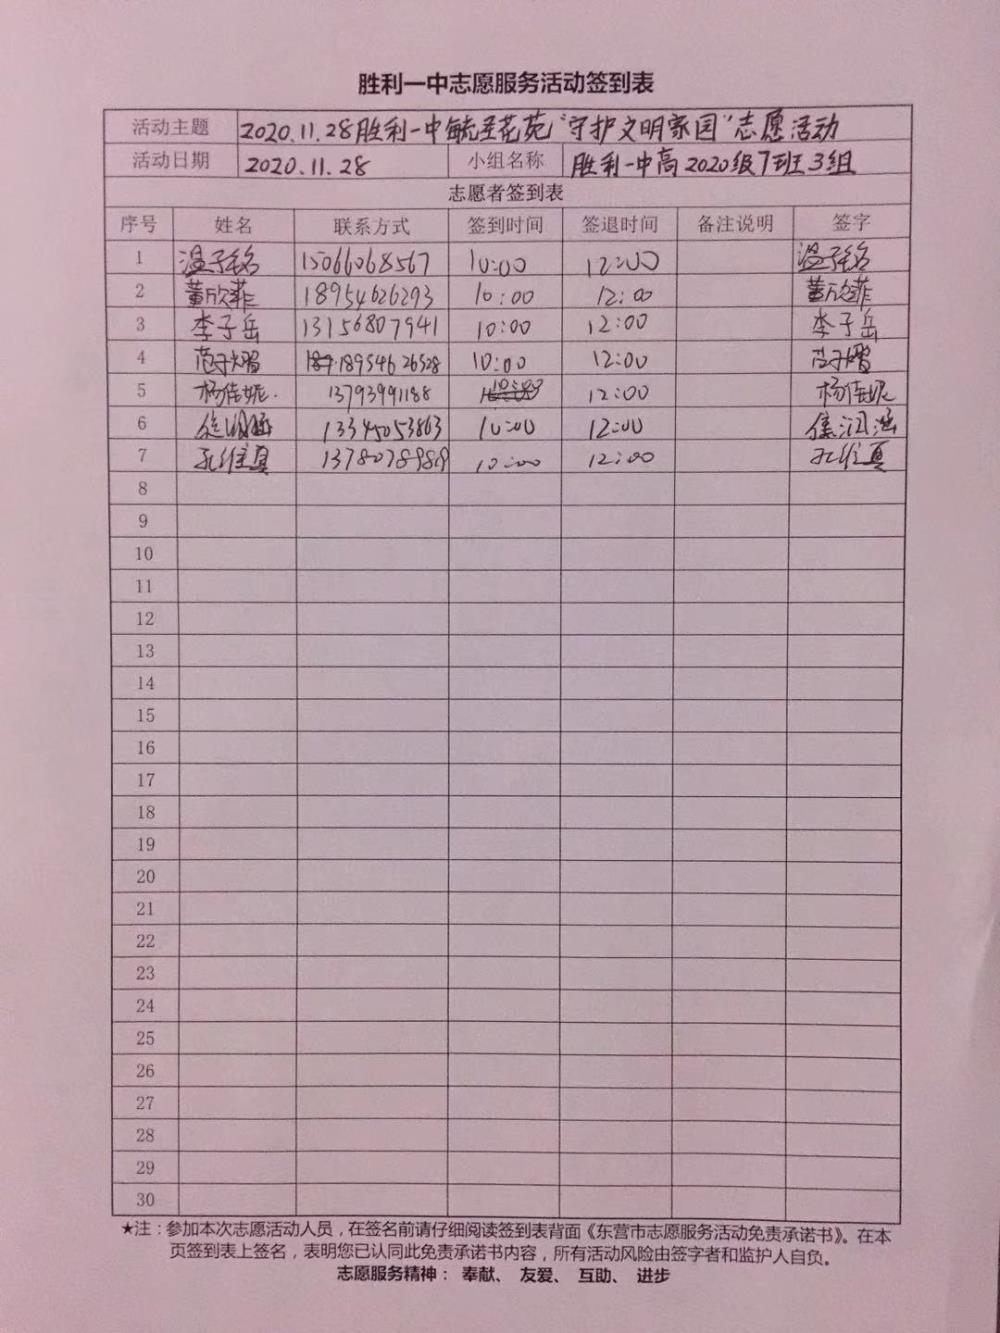 胜利一中志愿服务活动签到表
活动主题 2020.11.28胜利一中毓圣花苑“守护文明家园”志愿活动
活动日期 2020.11.28 小组名称 胜利一中高2020级7班3组
志愿者签到表
序号 姓名 联系方式 签到时间 签退时间 备注说明 签字
1 温子铭 15066068567 10:00 12:00 温子铭
2 董欣菲 18954626293 10:00 12:00 董欣菲
3 李子岳 13156807941 10:00 12:00 李子岳
4 18954626528 10:00 12:00
5 杨佳妮 13793991188 12:00 杨佳妮
6 13345053863 10:00 12:00
7 孔维真 13780789 10:00 12:00 孔维真
8
9
10
11
12
13
14
15
16
17
18
19
20
21
22
23
24
25
26
27
28
29
30
★注：参加本次志愿活动人员，在签名前请仔细阅读签到表背面《东营市志愿服务活动免责承诺书》。在本
页签到表上签名，表明您已认同此免责承诺书内容，所有活动风险由签字者和监护人自负。
志愿服务精神： 奉献、 友爱、 互助、 进步